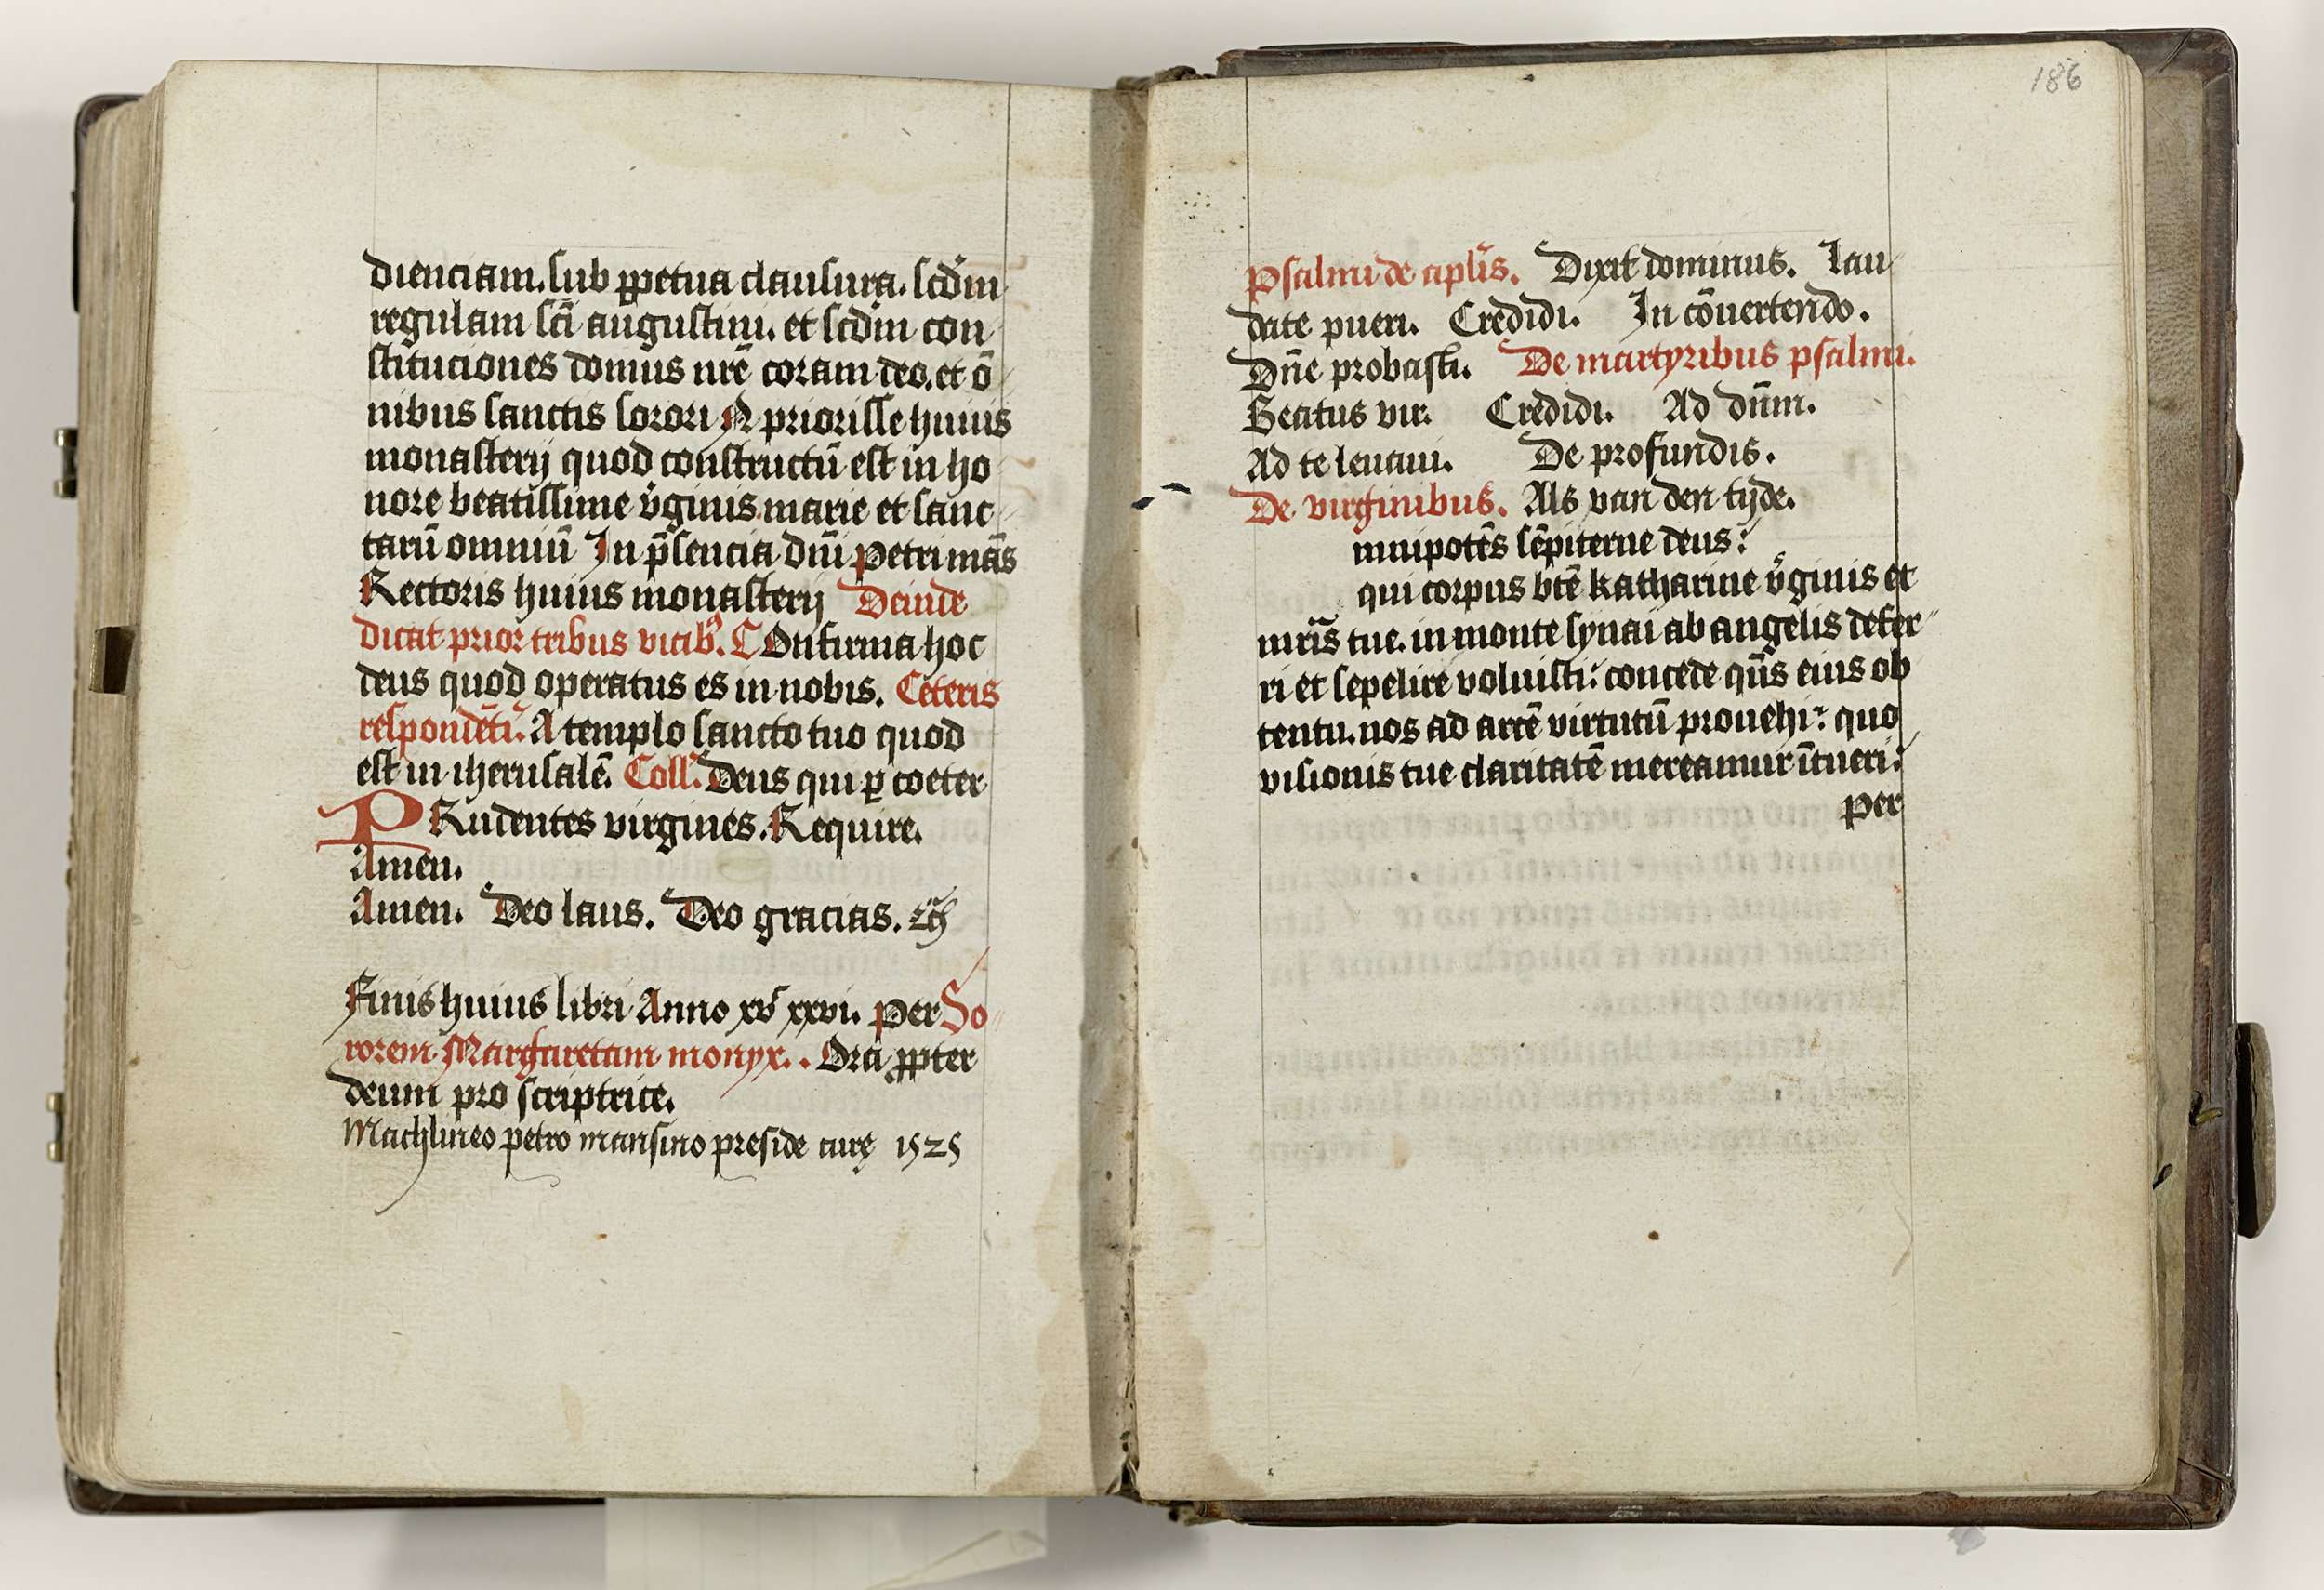 dienciam. sub ꝑpetua clausura. scd̄m
regulam sc̄i augustini. et scd̄m con
stituciones domus nr̄e coram deo. et ō
nibus sanctis sorori N priorisse huius
monasterij quod constructū est in ho
nore beatissime v̄ginis marie et sanc
tarū omniū In p̄sencia dn̄i petri mās
Rectoris huius monasterij Deinde
dicat prior tribus vicibꝰ. COnfirma hoc
deus quod operatus es in nobis. Ceteris
respondētiᷣ. A templo sancto tuo quod
est in iherusalē. Coll̄. Deus qui ꝑ coeter
PRudentes virgines. Require.
Amen.
Amen. Deo laus. Deo gracias. 
Finis huius libri Anno xvͨ xxvi. per So
rorem Margaretam monyx.. Ora ꝓpter
deum pro scriptrice.
Machlineo petro mansino preside curę 1525
186
Psalmi de apl̄is. Dixit dominus. Lau
date pueri. Credidi. In cōuertendo.
Dn̄e probasti. De martyribus psalmi.
Beatus vir. Credidi. Ad dn̄m.
Ad te leuaui. De profundis.
De virginibus. Als van den tijde.
mnipotēs sēpiterne deus:
qui corpus bt̄e katharine v̄ginis et
mr̄is tue. in monte synai ab angelis defer
ri et sepelire voluisti: concede qn̄s eius ob
tentu. nos ad arcē virtutū prouehi: quo
visionis tue claritatē mereamur ītueri:
per